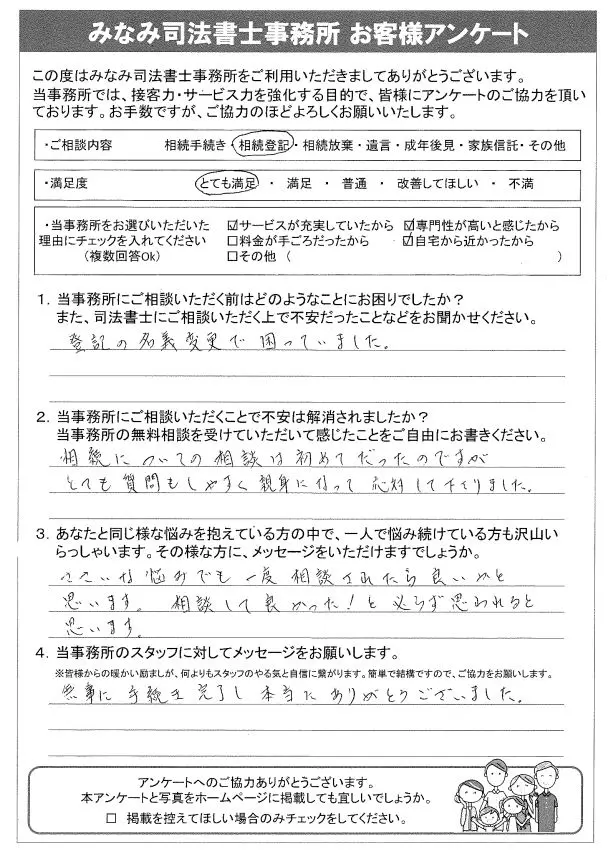 みなみ司法書士事務所 お客様アンケート
この度はみなみ司法書士事務所をご利用いただきましてありがとうございます。
当事務所では、接客力・サービス力を強化する目的で、皆様にアンケートのご協力を頂い
ております。お手数ですが、ご協力のほどよろしくお願いいたします。
・ご相談内容 相続手続き・相続登記・相続放棄・遺言・成年後見・家族信託・その他
・満足度 とても満足 ・ 満足 ・ 普通 ・ 改善してほしい ・ 不満
・当事務所をお選びいただいた ☑サービスが充実していたから ☑専門性が高いと感じたから
理由にチェックを入れてください □料金が手ごろだったから ☑自宅から近かったから
(複数回答Ok) □その他 ( )
1. 当事務所にご相談いただく前はどのようなことにお困りでしたか?
また、司法書士にご相談いただく上で不安だったことなどをお聞かせください。
登記の名義変更で困っていました。
2. 当事務所にご相談いただくことで不安は解消されましたか?
当事務所の無料相談を受けていただいて感じたことをご自由にお書きください。
相続についての相談は初めてだったのですが
とても質問もしやすく親身になって応対して下さりました。
3. あなたと同じ様な悩みを抱えている方の中で、一人で悩み続けている方も沢山い
らっしゃいます。その様な方に、メッセージをいただけますでしょうか。
ささいな悩みでも一度相談されたら良いかと
思います。相談して良かった!と必らず思われると
思います。
4. 当事務所のスタッフに対してメッセージをお願いします。
※皆様からの暖かい励ましが、何よりもスタッフのやる気と自信に繋がります。簡単で結構ですので、ご協力をお願いします。
無事に手続き完了し本当にありがとうございました。
アンケートへのご協力ありがとうございます。
本アンケートと写真をホームページに掲載しても宜しいでしょうか。
□ 掲載を控えてほしい場合のみチェックをしてください。